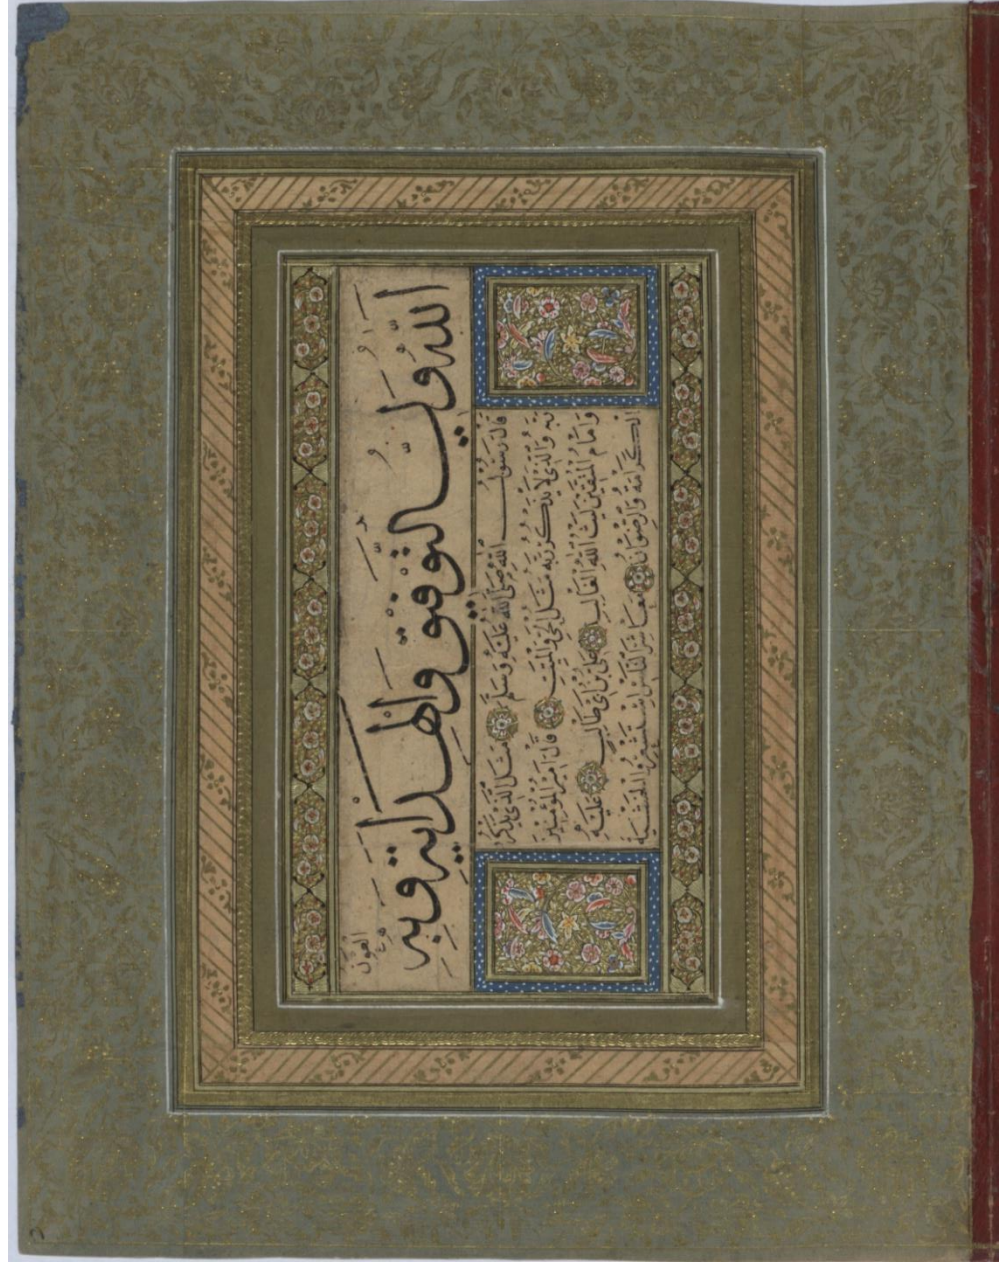 الله ولي التوفيق والهداية وبه العون
قال رسول الله صلى الله عليه وسلم مثل الذي يذكر
ربه والذي لا يذكر ربه مثل الحي والميت قال امير المؤمنين
وامام المتقين ليث الله الغالب علي بن ابي طالب عليه
الكرامة والرضوان معاشر استشعروا الخشية